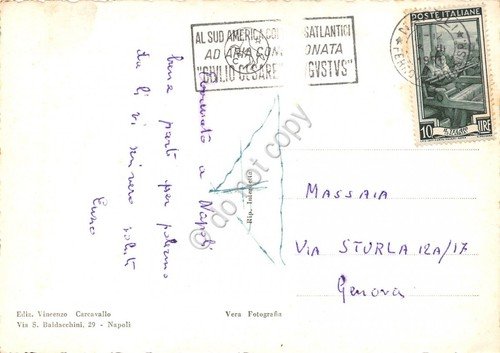 AL SUD AMERICA CON TRANSATLANTICI
AD ARIA CONDIZIONATA
"GIULIO CESARE" "AUGVSTVS"
POSTE ITALIANE
10
LIRE
a Napoli
bene parti per palermo
da lì vi scriverò saluti
Enzo
Rip. Interdetta
do not copy
MASSAIA
VIA STURLA 12A/17
Genova
Ediz. Vincenzo Carcavallo
Via S. Baldacchini, 29 - Napoli
Vera Fotografia